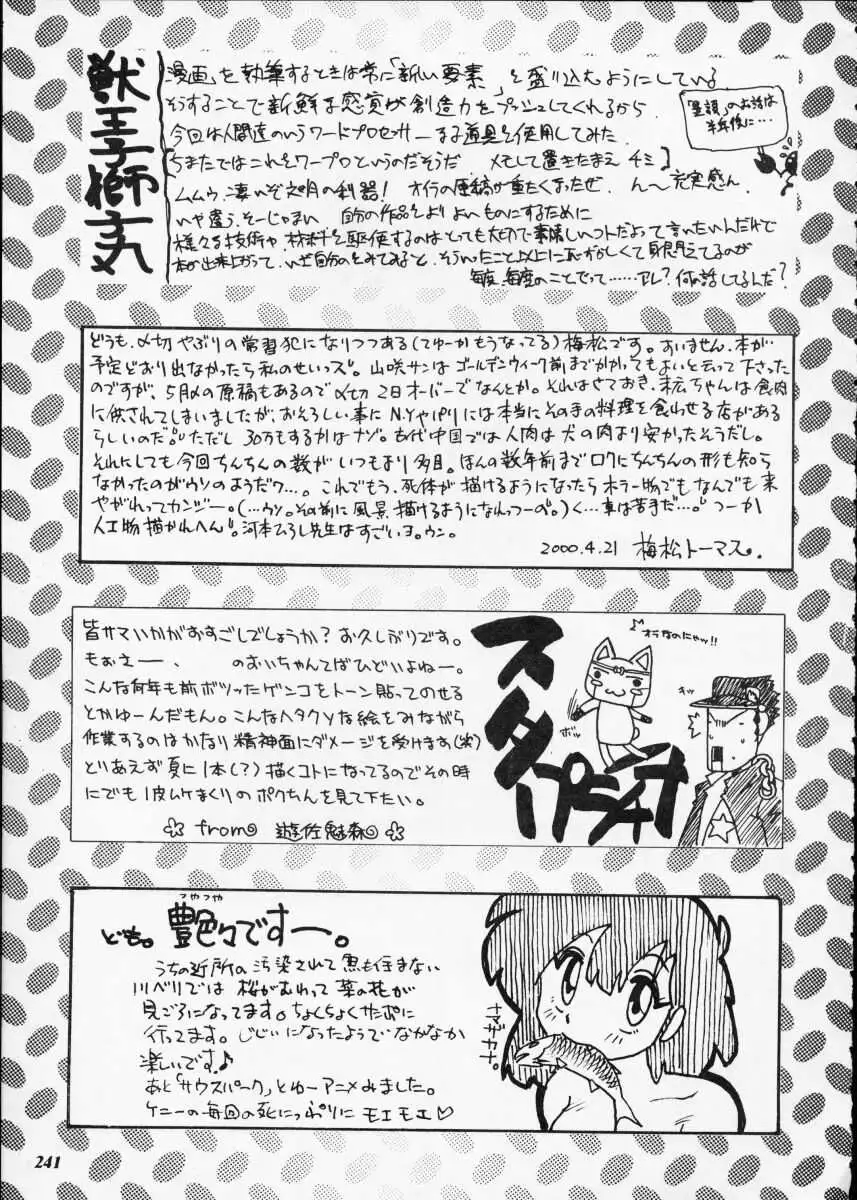 獣王子獅子丸
「漫画」を執筆するときは常に「新しい要素」を盛り込むようにしている
そうすることで新鮮な感覚が創造力をプッシュしてくれるから
今回は人間達のいうワードプロセッサーなる道具を使用してみた
ちまたではこれをワープロというのだそうだ メモして置きたまえ チミ
ムムウ、凄いぞ文明の利器! オイラの原稿が重たくなったぜ。ん~充実感ん。
いや違う、そーじゃない 自分の作品をよりよいものにするために
様々な技術や材料を駆使するのはとっても大切で素晴しいコトだよって言いたいんだけど
本が出来上がって、いざ自分のをみてみると、そういったこと以上に恥ずかしくて
毎度、毎度のことでって……アレ?何の話してるんだ?
のお話は
半年後に…
どうも、〆切やぶりの常習犯になりつつある(てゆーかもうなってる)梅松です。すいません、本が…
予定どおり出なかったら私のせいっス。山咲サンはゴールデンウィーク前までかかってもよいと云って下さった
のですが、5月〆の原稿もあるので〆切2日オーバーでなんとか。それはさておき、ちゃんは食肉
に供されてしまいましたが、おそろしい事にN.Yやパリには本当にそのまま料理を食わせる店がある
らしいのだ。ただし30万もするかはナゾ。古代中国では人肉は犬の肉より安かったそうだし。
それにしても今回ちんちんの数がいつもより多目。ほんの数年前までロクにちんちんの形も知ら
なかったのがウソのようだワ…。これでもう、死体が描けるようになったらホラー物でもなんでも来
やがれってカンジー。(…ウソ。その前に風景描けるようになれっつーの。)く…車は苦手だ…。つーか
人工物描かれへん。河本ひろし先生はすごいヨ。ウン。
2000.4.21 梅松トーマス。
皆サマいかがおすごしでしょうか?お久しぶりです。
もぉさー、 のおいちゃんてばひどいよねー。
こんな何年も前ボツったゲンコをトーン貼ってのせる
とかゆーんだもん。こんなヘタクソな絵をみながら
作業するのはかなり精神面にダメージを受けます(笑)
とりあえず夏に1本(?)描くコトになってるのでその時
にでも1皮ムケまくりのボクちんを見て下たい。
☆from 遊佐魅森☆
スタープラチナ
♪オラなのにゃッ!!
ボッ
どもっ。艶々ですー。
つやつや
うちの近所の汚染されて魚も住まない
川べりでは 桜がおわって菜の花が
見ごろになってます。ちょくちょくサボりに
行ってます。じじいになったようでなかなか
楽しいです♪
あと「サウスパーク」とゆーアニメみました。
ケニーの毎回の死にっぷりにモエモエ♡
ナマザカナ。
241